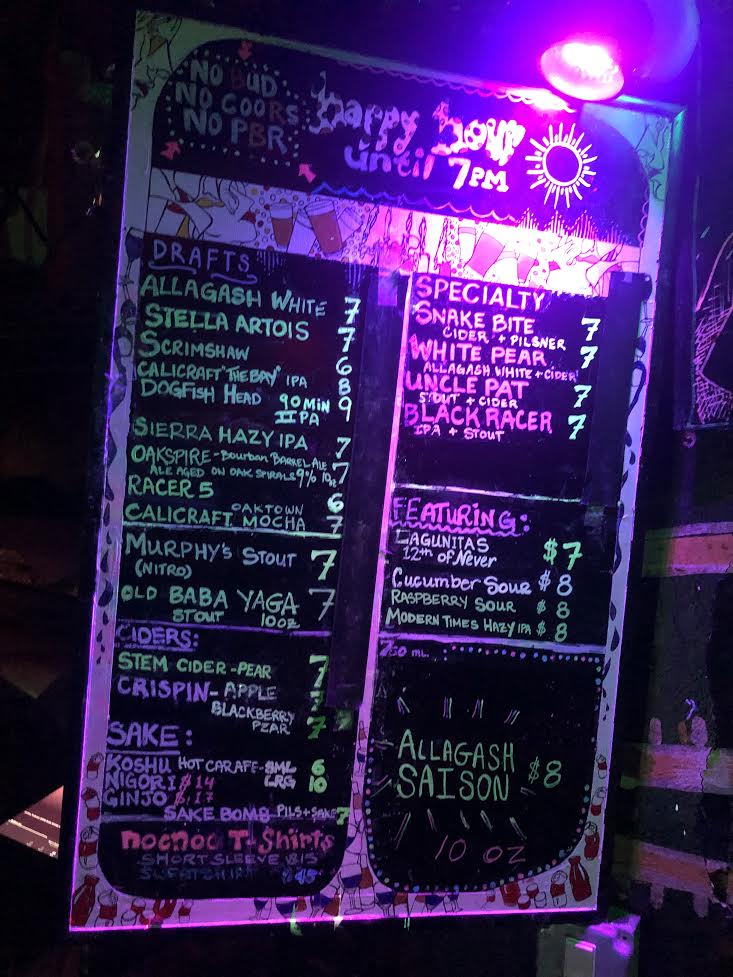 NO BUD
NO COORS
NO PBR
happy hour
until 7PM
DRAFTS
ALLAGASH WHITE 7
STELLA ARTOIS 7
SCRIMSHAW 6
CALICRAFT "THE BAY" IPA 8
DOGFISH HEAD 90 MIN 9
IIPA
SIERRA HAZY IPA 7
OAKSPIRE - Bourbon BARREL ALE 7
ALE AGED ON OAK SPIRALS 9% 10oz
RACER 5 6
CALICRAFT OAKTOWN MOCHA 7
MURPHY'S STOUT 7
(NITRO)
OLD BABA YAGA 7
STOUT 10OZ
CIDERS:
STEM CIDER - PEAR 7
CRISPIN - APPLE 7
BLACKBERRY
PEAR 7
SAKE:
KOSHU HOT CARAFE - SML 6
LRG 10
NIGORI $14
GINJO $17
SAKE BOMB PILS + SAKE 7
nocnoc T-Shirts
SHORT SLEEVE $15
SWEATSHIRT $45
SPECIALTY
SNAKE BITE 7
CIDER + PILSNER
WHITE PEAR 7
ALLAGASH WHITE + CIDER
UNCLE PAT 7
STOUT + CIDER
BLACK RACER 7
IPA + STOUT
FEATURING:
LAGUNITAS $7
12th of Never
Cucumber Sour $8
RASPBERRY SOUR $8
MODERN TIMES HAZY IPA $8
750 ML.
ALLAGASH
SAISON $8
10 OZ